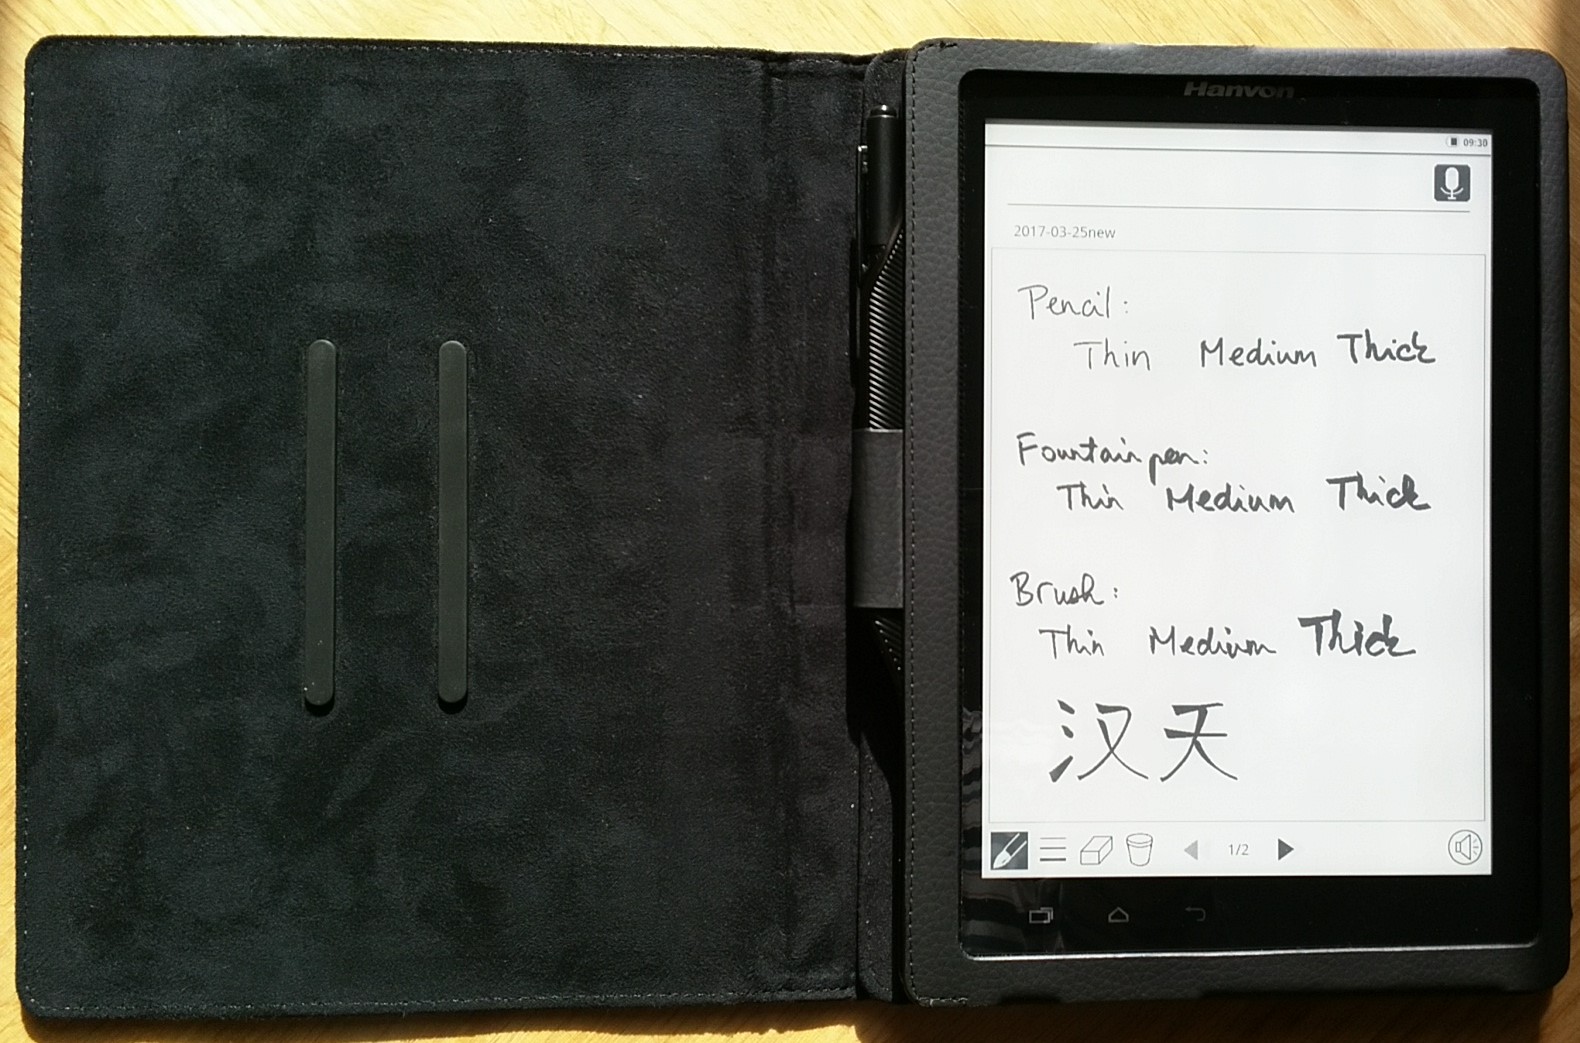 Hanvon
09:30
2017-03-25new
Pencil:
Thin Medium Thick
Fountain pen:
Thin Medium Thick
Brush:
Thin Medium Thick
汉天
1/2